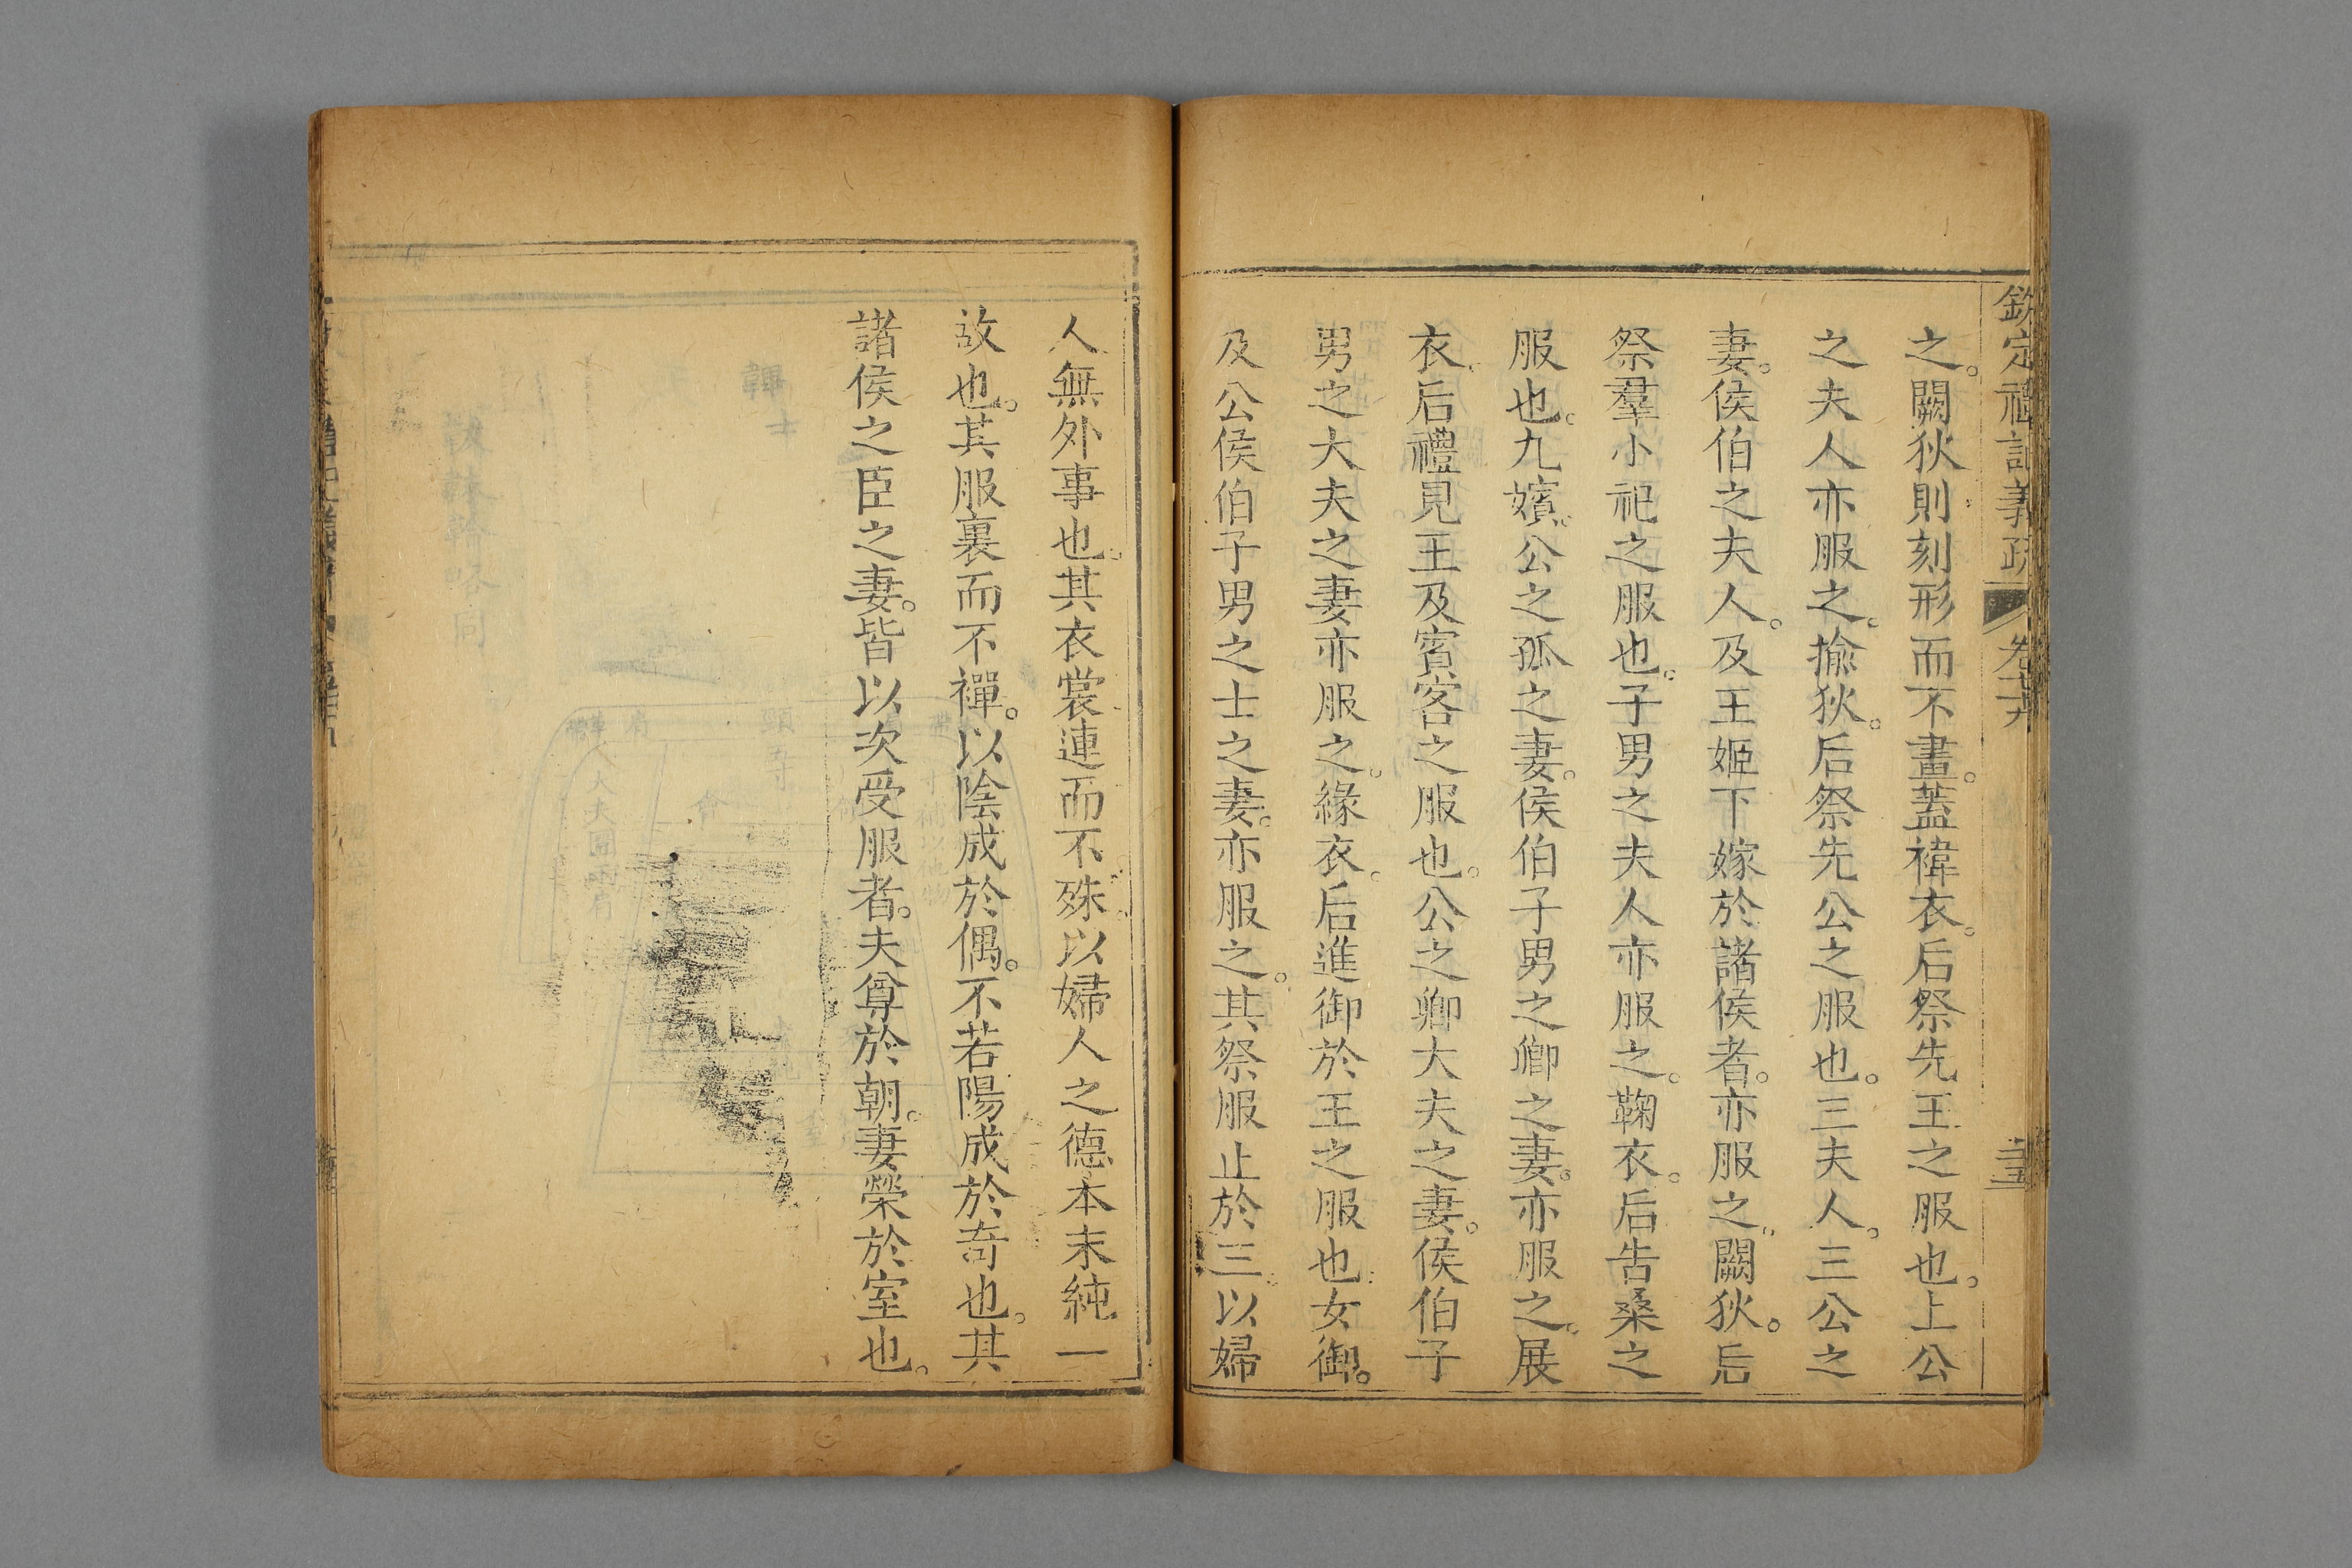 欽定禮記義疏 卷
之。闕狄則刻形而不畫。蓋褘衣。后祭先王之服也。上公
之夫人亦服之。揄狄。后祭先公之服也。三夫人。三公之
妻。侯伯之夫人。及王姬下嫁於諸侯者。亦服之。闕狄。后
祭羣小祀之服也。子男之夫人亦服之。鞠衣。后告桑之
服也。九嬪。公之孤之妻。侯伯子男之卿之妻。亦服之。展
衣。后禮見王及賓客之服也。公之卿大夫之妻。侯伯子
男之大夫之妻亦服之。緣衣。后進御於王之服也。女御。
及公侯伯子男之士之妻。亦服之。其祭服止於三。以婦
人無外事也。其衣裳連而不殊。以婦人之德。本末純一
故也。其服裏而不襌。以陰成於偶。不若陽成於奇也。其
諸侯之臣之妻。皆以次受服者。夫尊於朝。妻榮於室也。